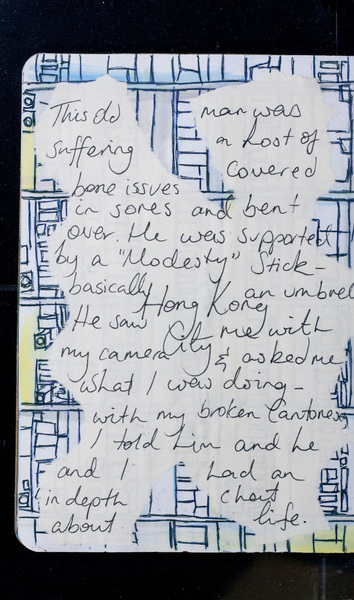 This old man was
suffering a host of
bone issues covered
in sores and bent
over. He was supported
by a "Modesty" Stick -
basically an umbrel
Hong Kong
City
He saw me with
my camera & asked me
what I was doing -
with my broken Cantones
I told him and he
and I had an
in depth chat
about life.